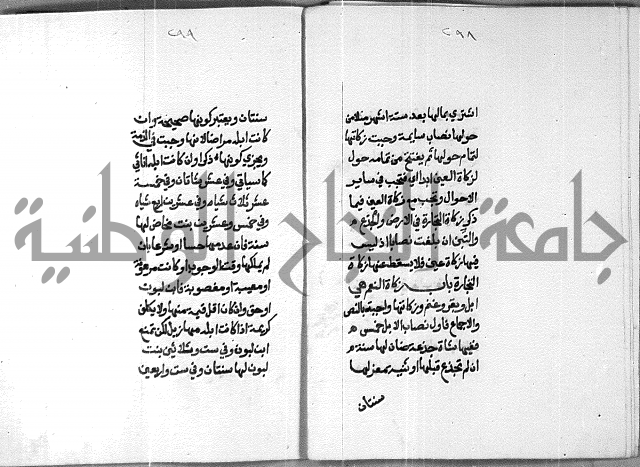 ٢٩٨
اشتري بمالها بعد ستة اشهر مثلا من
حولها نصاب سايمة وجبت زكاتها
لتمام حولها ثم يفتتح من تمامه حول
لزكاة العين ابدا اي فتجب في ساير
الاحوال وتجب مع زكاة العين فيما
ذكر زكاة التجارة في الارض والجذع
والتبن ان بلغت نصابا اذ ليس
فيها زكاة عين فلا يسقط عنها زكاة
التجارة باب زكاة النعم هي
ابل وبقر وغنم وزكاتها واجبة بالنص
والاجماع فاول نصاب الابل خمس
ففيها شاة جذعة ضان لها سنة
ان لم تجذع قبلها او ثنية معز لها
سنتان
٢٩٩
سنتان ويعتبر كونها صحيحة وان
كانت ابله مراضا لانها وجبت في الذمة
ويجزي كونها ذكرا وان كانت ابله اناثي
كما سياتي وفي عشر شاتان وفي خمسة
عشر ثلاث شياه وفي عشرين اربع شياه
وفي خمس وعشرين بنت مخاض لها
سنة فان عدمها حسا او شرعا بان
لم يملكها وقت الوجوب او كانت مرهونة
او معيبة او مغصوبة فابن لبون
او حق وان كان اقل قيمة منها ولا يكلف
كريمة اذا كانت ابله مهازيل لكن تمنع
ابن لبون وفي ست وثلاثين بنت
لبون لها سنتان وفي ست واربعين
جامعة النجاح الوطنية